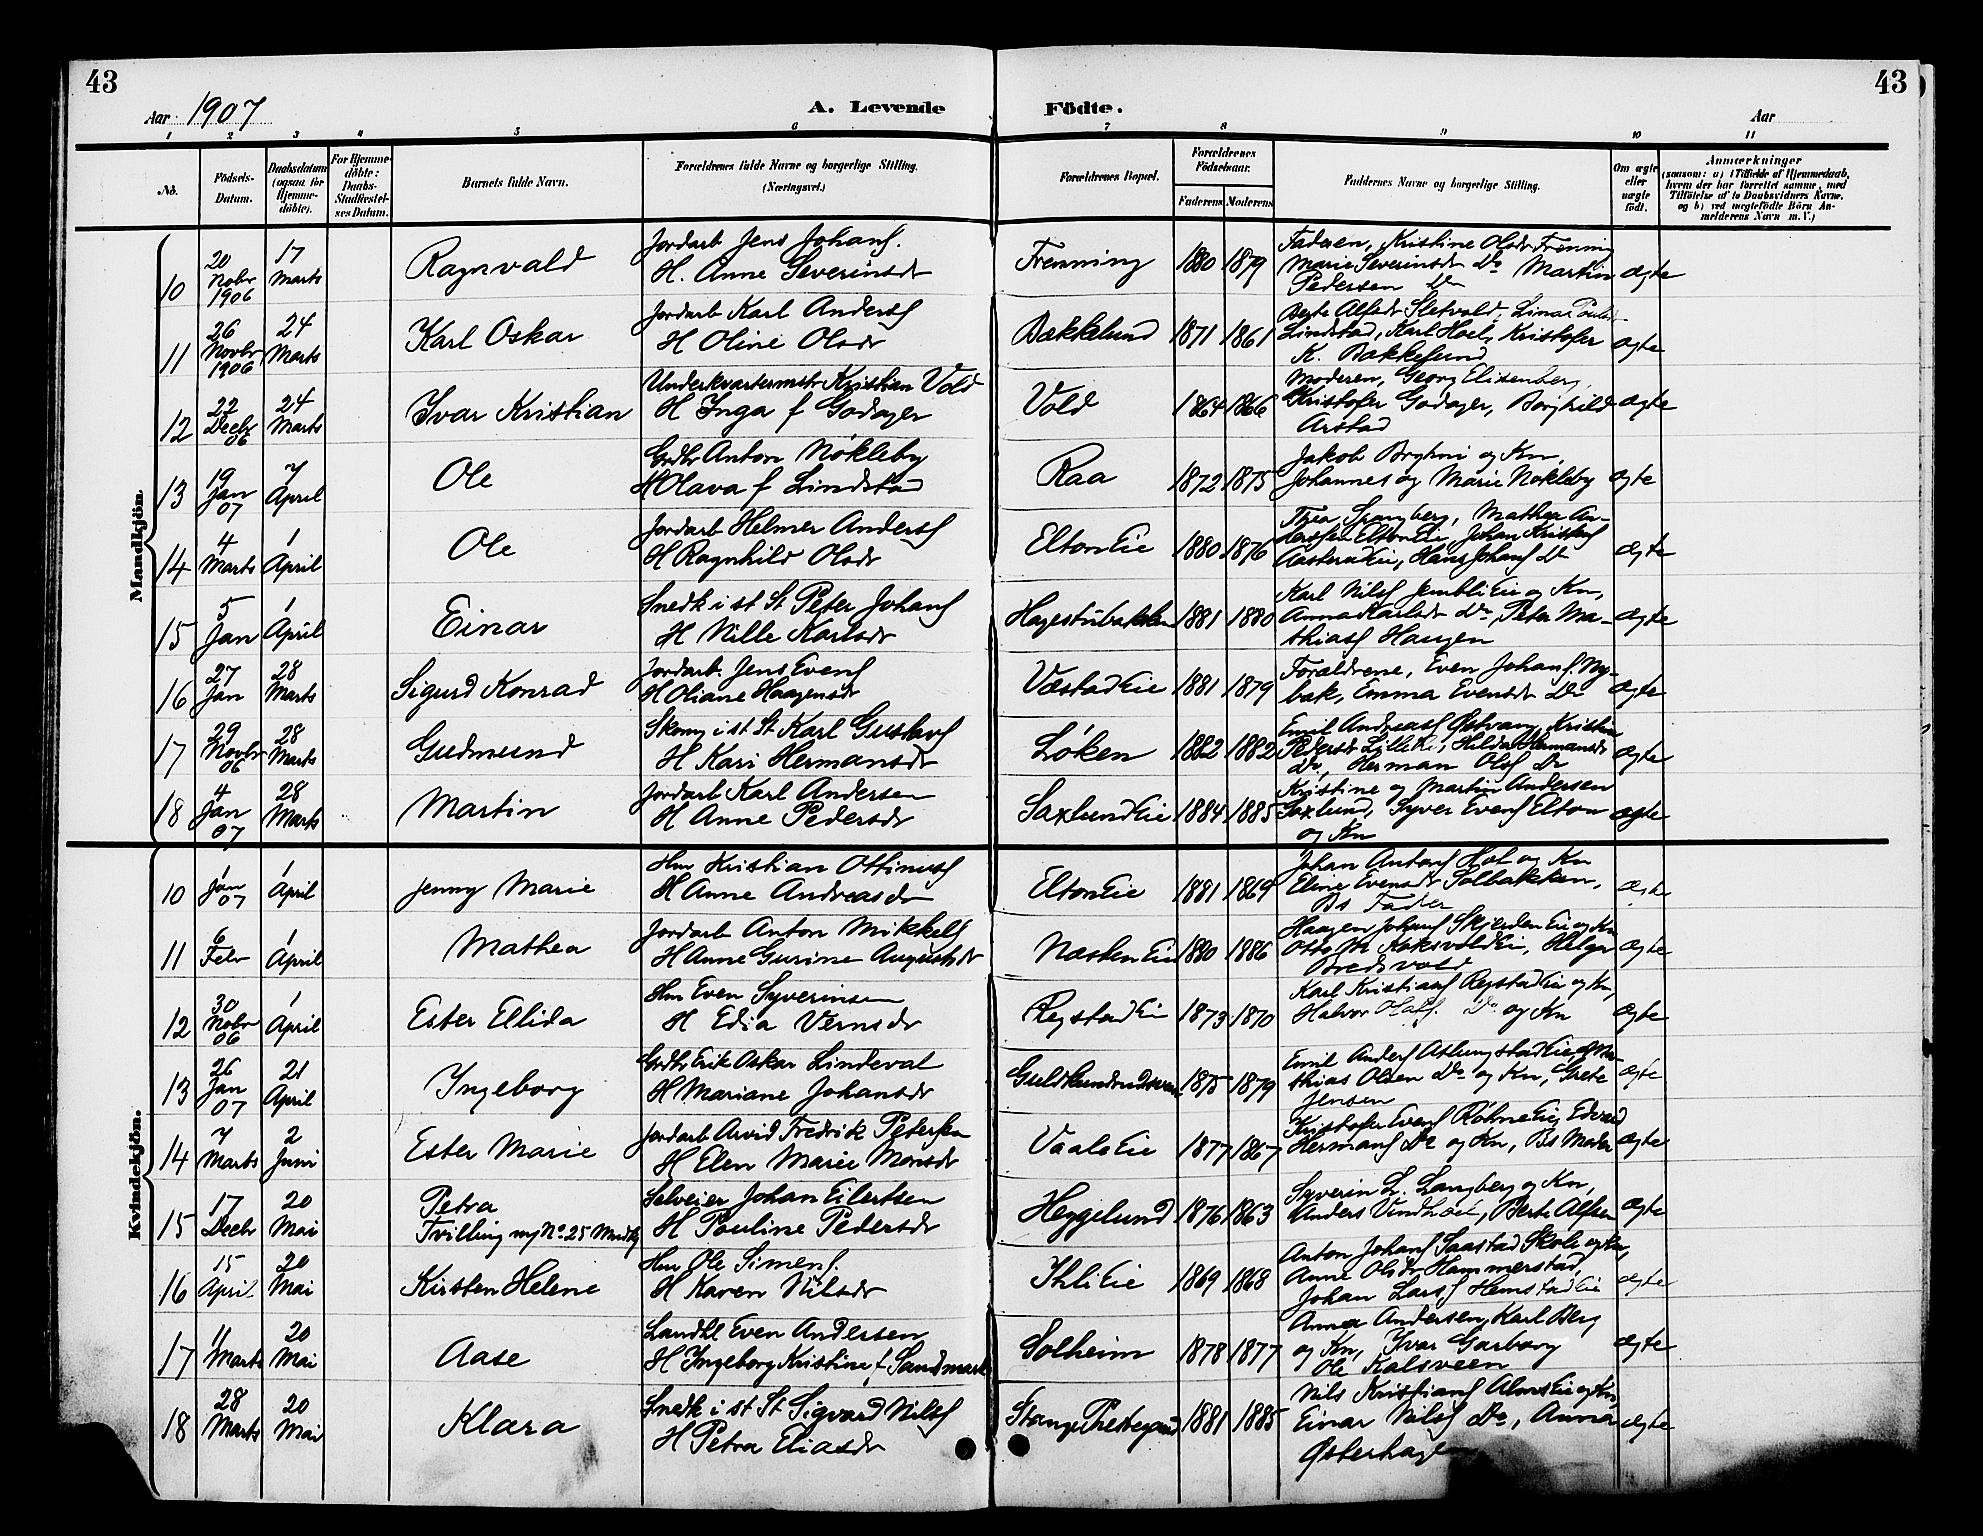 43
43
Aar 1907
A. Levende
Födte.
Aar
1 2 3 4 5 6 7 8 9 10 11
No.
Födsels-
Datum.
Daabsdatum
(ogsaa for
Hjemme-
döbte).
For Hjemme-
döbte:
Daabs-
Stadfæstel-
ses Datum.
Barnets fulde Navn.
Forældrenes fulde Navne og borgerlige Stilling.
(Næringsvei.)
Forældrenes Bopæl.
Forældrenes
Födselsaar.
Faderens Moderens
Faddernes Navne og borgerlige Stilling.
Om ægte
eller
uægte
födt.
Anmærkninger
(saasom: a) i Tilfælde af Hjemmedaab,
hvem der har forrettet samme, med
Tilföielse af to Daabsvidners Navne,
og b) ved uægtefödte Börn An-
melderens Navn m. V.)
Mandkjön.
10
20 Nobr 1906
17 Marts
Ragnvald
Jordarb Jens Johans.
H. Anne Severinsdr
Frenning
1880 1879
Faderen, Kristine Olsdr Frenning
Marie Severinsdr Do Martin
Pedersen Do
ægte
11
26 Novbr 1906
24 Marts
Karl Oskar
Jordarb Karl Anders
H Oline Olsdr
Bækkelund
1871 1861
Lindstad, Karl Hoel, Kristofer
K. Bækkelund
ægte
12
22 Decbr 06
24 Marts
Ivar Kristian
Underkvartermstr Kristian Vold
H Inga f Godager
Vold
1864 1866
Moderen, Georg Elisenberg,
Kristofer Godager, Borghild
Arstad
ægte
13
19 Jan 07
7 April
Ole
Grdbr Anton Nökleby
H Olava f Lindstad
Raa
1872 1875
Jakob Bryhni og Kn,
Johannes og Marie Nökleby
ægte
14
4 Marts
1 April
Ole
Jordarb Helmer Anders
H Ragnhild Olsdr
Elton Eie
1880 1876
Thea Spangberg, Mathea An-
Elton Eie, Johan Kristians
Hans Johans Do
ægte
15
5 Jan
1 April
Einar
Snedk i st St Peter Johans
H Nille Karlsdr
Hagestubakken
1881 1880
Karl Nils Jembli Eie og Kn,
Anna Karlsdr Do, Peter Ma-
thias Haugen
ægte
16
27 Jan
28 Marts
Sigurd Konrad
Jordarb. Jens Evens
H Oliane Haagensdr
Væstad Eie
1881 1879
Forældrene, Even Johans Ny-
bak, Emma Evensdr Do
ægte
17
29 Novbr 06
28 Marts
Gudmund
Skom i st St Karl Gustavs
H Kari Hermansdr
Löken
1882 1882
Emil Andreas Østvang, Kristine
Pedersdr Lille Eie, Hilda Hermansdr
Do, Herman Ols Do
ægte
18
4 Jan 07
28 Marts
Martin
Jordarb Karl Andersen
H Anne Pedersdr
Saxlund Eie
1884 1885
Kristine og Martin Andersen
Saxlund, Syver Evens Elton
og Kn
ægte
Kvindekjön.
10
1 Jan 07
1 April
Jenny Marie
Hm Kristian Ottinius
H Anne Andreasdr
Elton Eie
1881 1869
Johan Antons Hol og Kn
Eline Evensdr Solbakken,
Bs Fader
ægte
11
6 Febr
1 April
Mathea
Jordarb Anton Mikkels
H Anne Gurine Augustsdr
Næsten Eie
1880 1886
Haagen Johans Skjerden Eie og Kn
Otto M. Koksvold Eie, Helga
Bredsvold
ægte
12
30 Nobr 06
1 April
Ester Elida
Hm Even Syverinsen
H Edia Vernsdr
Rogstad Eie
1873 1870
Karl Kristians Rogstad Eie og Kn,
Halvor Olafs. Do og Kn
ægte
13
26 Jan 07
21 April
Ingeborg
Grdbr Erik Oskar Lindeval
H Mariane Johansdr
1875 1879
Emil Anders Aslungstad Eie og Ma-
thias Olsen Do og Kn, Grete
Jensen
ægte
14
7 Marts
2 Juni
Ester Marie
Jordarb Arvid Fredrik Petersen
H Elen Marie Monsdr
Vaals Eie
1877 1867
Kristofer Evens Röhne Eie, Edvard
Hermans Do og Kn, Bs Moder
ægte
15
17 Decbr
20 Mai
Petra
Tvilling m/ No. 25 Mandkj
Selveier Johan Eilertsen
H Pauline Pedersdr
Heggelund
1876 1863
Syverin L. Langberg og Kn,
Anders Vindhol, Berte Alfsen
ægte
16
15 April
20 Mai
Kirsten Helene
Hm Ole Simens.
H Karen Nilsdr
Ihli Eie
1869 1868
Anton Johans Saastad Skole og Kn,
Anne Olsdr Hammerstad,
Johan Lars Hemstad Eie
ægte
17
11 Marts
20 Mai
Aase
Landhl Even Andersen
H Ingeborg Kristine f Sandmark
Solheim
1878 1877
Anna Andersen, Karl Berg
og Kn, Ivar Garborg
Ole Kalsveen
ægte
18
28 Marts
20 Mai
Klara
Snedk i st St Sigvard Nils
H Petra Eliasdr
Stange Prestegaard
1881 1885
Nils Kristians Alms Eie og Kn,
Einar Nils Do, Anna
Østerhagen
ægte